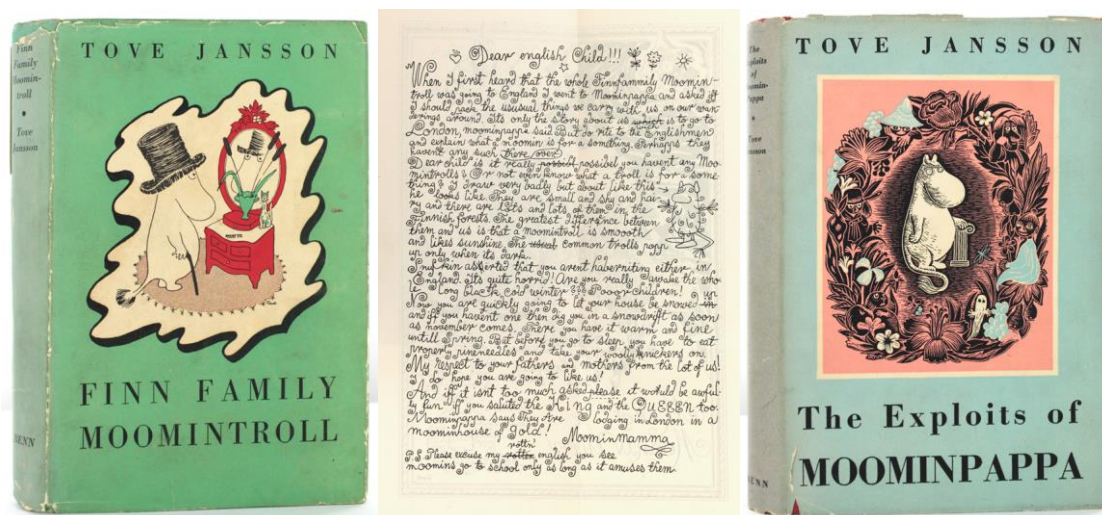 Finn
Family
Moomin-
troll
•
Tove
Jansson
BENN
TOVE JANSSON
FINN FAMILY
MOOMINTROLL
Dear english Child!!!
When I first heard that the whole Finnfammily Moomin-
troll was going to England I went to Moominpappa and asked iff
I should pack the ususual things we carry with us on our wan-
derings around. Its only the story about us which is to go to
London, moominpappa said. But do rite to the Englishmen
and explain what a moomin is for a something. Perhapps they
havent any such there over.
Dear child is it really possibel possibel you havent any Moo-
mintrolls? Or not even know what a troll is for a some
thing? I draw very badly but about like this
he looks like. They are small and shy and hai-
ry and there are lots and lots of them in the
Finnish forests. The greatest difference between
them and us is that a moomintroll is smoooth
and likes sunshine. The usual common trolls popp
up only when its dark.
Snufkin asserted that you arent haberniting either in
England. Its quite horrid! Are you really awake the who
long black cold winter??? Pooor children!
Now you are quickly going to let your house be snowed in up
and iff you havent one then dig you in a snowdrift as soon
as november comes. There you have it warm and fine
untill Spring. But before you go to sleep you have to eat
properly pineneedles and take your woolly knickers on.
My respect to your fathers and mothers from the lot of us!
I do hope you are going to like us!
And iff it isnt too much asked please it would be awful-
ly fun iff you saluted the King and the Queeen too.
Moominpappa says they are lodging in London in a
moominhouse of Gold!
MoominMamma
rottn
P.S. Please excuse my rotten english you see
moomins go to school only as long as it amuses them.
The
Exploits
of
Moomin-
Pappa
•
Tove
Jansson
BENN
TOVE JANSSON
The Exploits of
MOOMINPAPPA